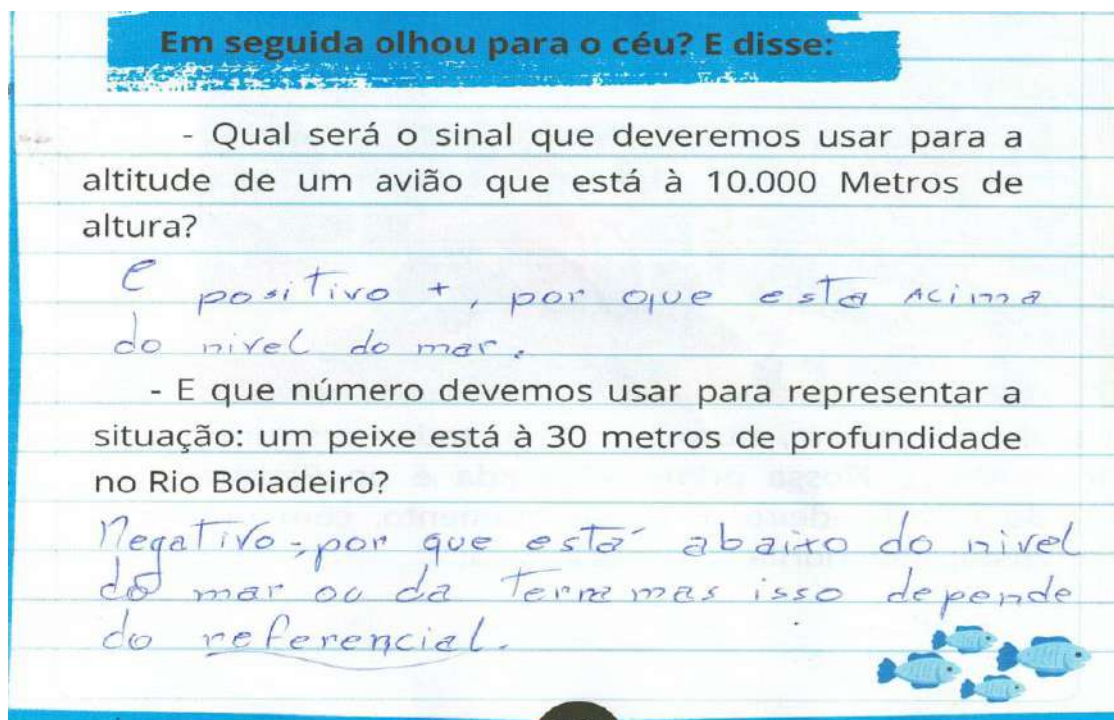 Em seguida olhou para o céu? E disse:
- Qual será o sinal que deveremos usar para a
altitude de um avião que está à 10.000 Metros de
altura?
e positivo +, por que esta acima
do nivel do mar.
- E que número devemos usar para representar a
situação: um peixe está à 30 metros de profundidade
no Rio Boiadeiro?
Negativo -, por que está abaixo do nivel
do mar ou da Terra mas isso depende
do referencial.